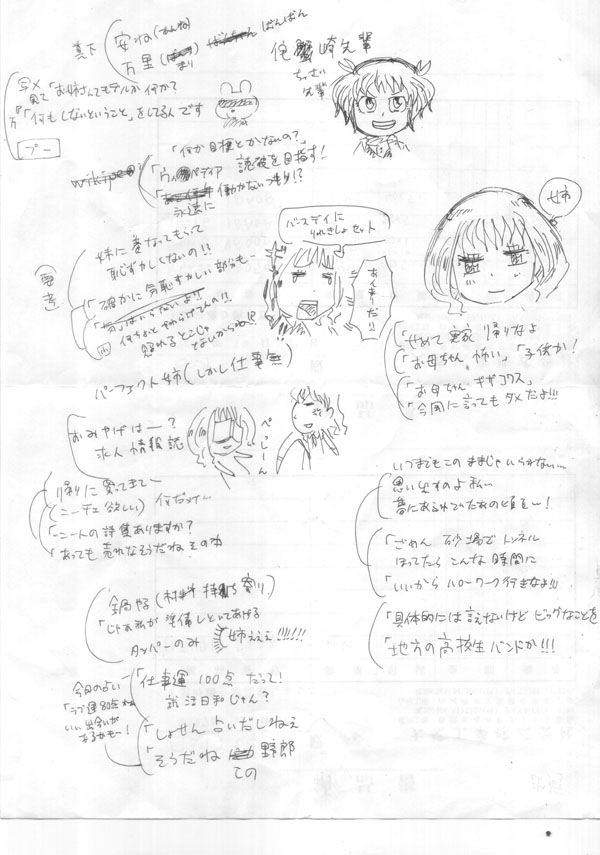 真下
安ね(あんね)
万里
まり
ばんばん
崎先輩
ちっさい
先輩
写メ
見て「お姉さんてモデルか何か?
「何もしないということ」をしてるんです
プー
「何か目標とかないの?」
wikipe
ペディア 読破を目指す!
働かないつもり!?
永遠に
姉
バースデイに
りれきしょセット
あんまりだ!!
妹に養なってもらって
恥ずかしくないの!!
要考
「確かに気恥ずかしい部分も
照れるとこじゃ
ないからね!?
パーフェクト姉(しかし仕事無
「せめて実家帰りなよ
「お母ちゃん怖い」「子供か!
「お母ちゃん ギザコワス」
「今風に言ってもダメだよ!!!
おみやげはー?
求人情報誌
帰りに買ってきてー
(ニーチェ欲しい) 何だって…
「ニートの詩集ありますか?
「あっても売れなそうだねその本
いつまでもこのままじゃいられない…
思い出すのよ私…
夢にあふれていたあの頃を…!
「ごめん 砂場でトンネル
ほってたらこんな時間に
「いいからハローワーク行きなよ!!
「具体的には言えないけど ビッグなことを
「地方の高校生バンドか!!!
鍋やる(材料持ち寄り)
「じゃあ私が準備しといてあげる
タッパーのみ 姉ぇぇぇ!!!!!!
今日の占い
「ラブ運80点
いい出会いが
あるかもー!
「仕事運100点だって!
就活日和じゃん?
「しょせん占いだしねぇ
「そうだね 野郎
この